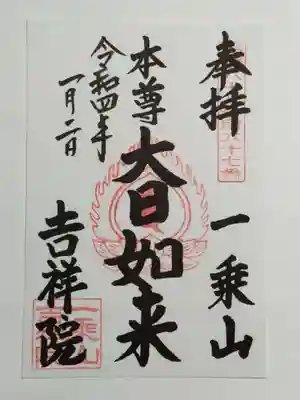 奉拝
一乗山
本尊
大日如来
令和四年
一月二日
吉祥院